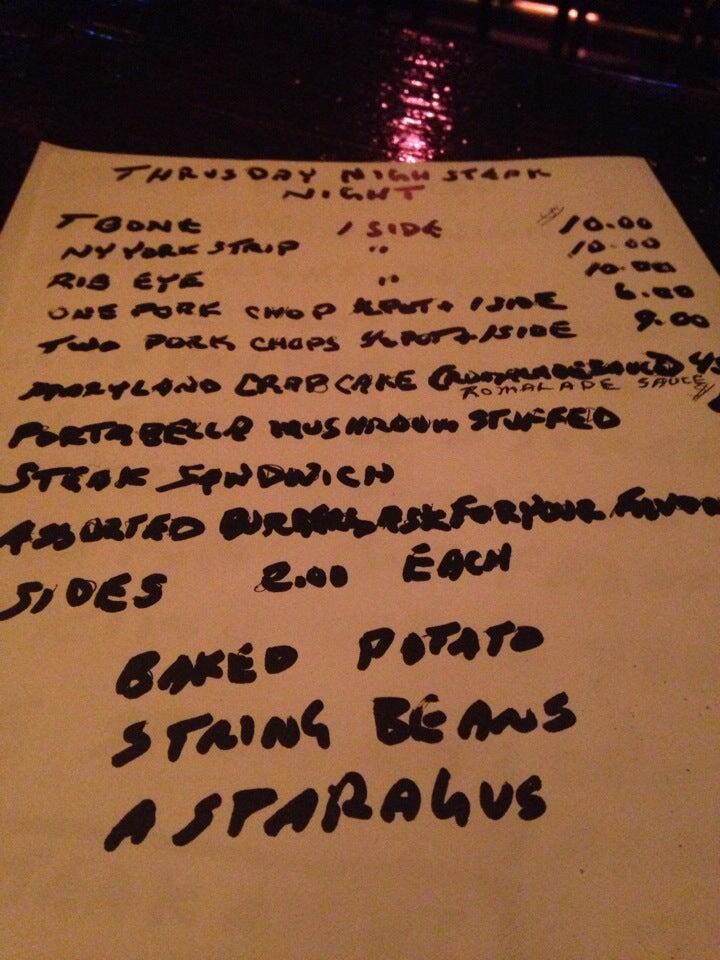 THRUSDAY NIGH STEAK
NIGHT
T BONE 1 SIDE 10.00
NY YORK STRIP " 10.00
RIB EYE " 10.00
ONE PORK CHOP 1 SIDE 6.00
TWO PORK CHOPS 1 SIDE 9.00
MARYLAND CRAB CAKE
ROMALADE SAUCE
PORTABELLA MUSHROOM STUFFED
STEAK SANDWICH
ASSORTED BURGERS ASK FOR YOUR
SIDES 2.00 EACH
BAKED POTATO
STRING BEANS
ASPARAGUS